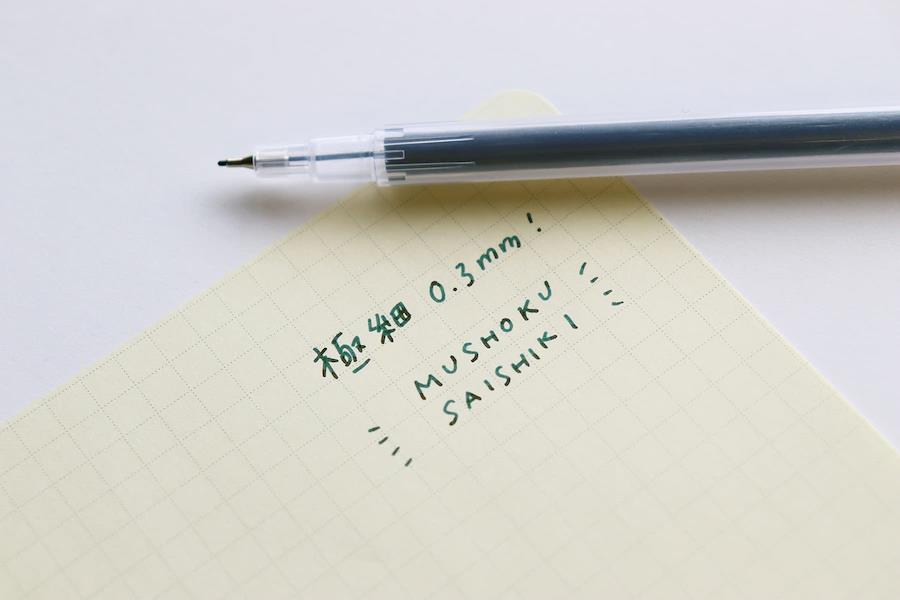 極細 0.3mm!
MUSHOKU
SAISHIKI